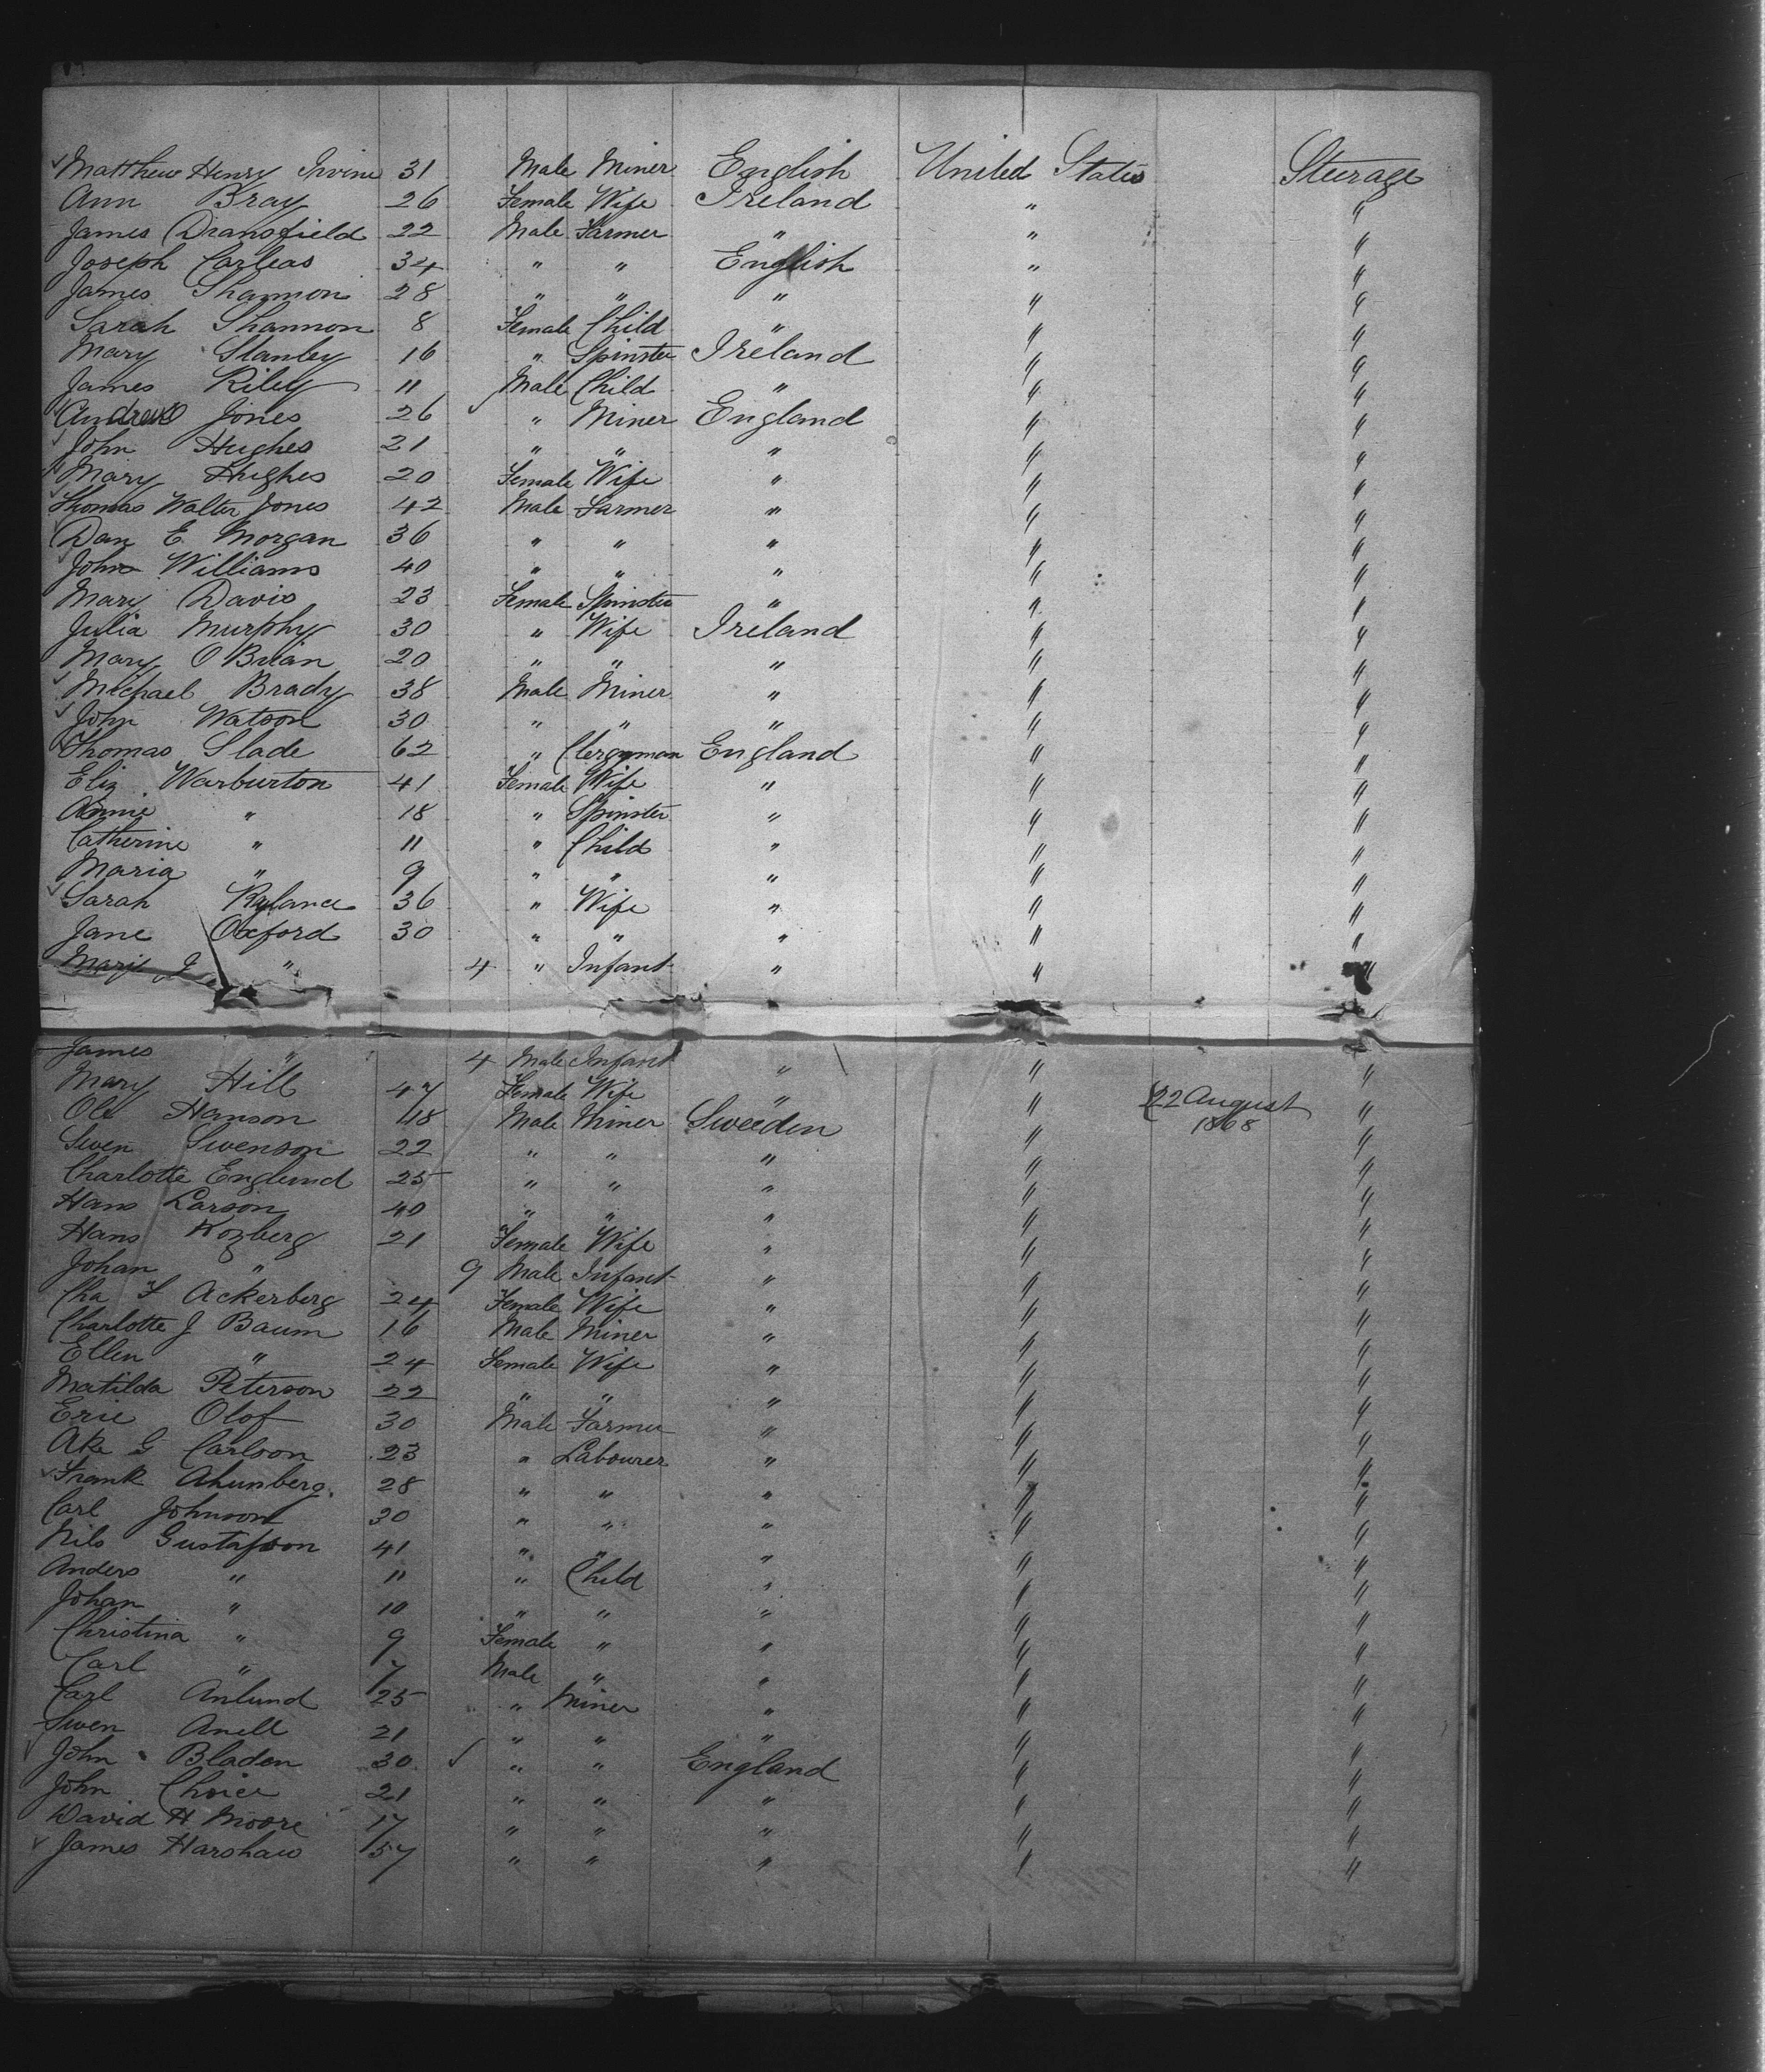 Matthew Henry Irvine 31 Male Miner English United States Steerage
Ann Bray 26 Female Wife Ireland " "
James Dransfield 22 Male Farmer " " "
Joseph Carleas 34 " " English " "
James Shannon 28 " " " " "
Sarah Shannon 8 Female Child " " "
Mary Stanley 16 " Spinster Ireland " "
James Riley 11 Male Child " " "
Andrew Jones 26 " Miner England " "
John Hughes 21 " " " " "
Mary Hughes 20 Female Wife " " "
Thomas Walter Jones 42 Male Farmer " " "
Dan E. Morgan 36 " " " " "
John Williams 40 " " " " "
Mary Davis 23 Female Spinster " " "
Julia Murphy 30 " Wife Ireland " "
Mary O Brian 20 " " " " "
Michael Brady 38 Male Miner " " "
John Watson 30 " " " " "
Thomas Slade 62 " Clergyman England " "
Eliz Warburton 41 Female Wife " " "
Annie " 18 " Spinster " " "
Catherine " 11 " Child " " "
Maria " 9 " " " " "
Sarah Ryland 36 " Wife " " "
Jane Oxford 30 " " " " "
Mary J " 4 " Infant " " "
James " 4 Male Infant " " "
Mary Hill 47 Female Wife " " "
Ole Hanson 18 Male Miner Sweeden " 22 August 1868 "
Swen Swenson 22 " " " " "
Charlotte Englund 25 " " " " "
Hans Larson 40 " " " " "
Hans Kozberg 21 Female Wife " " "
Johan " 9 Male Infant " " "
Cha F Ackerberg 24 Female Wife " " "
Charlotte J Baum 16 Male Miner " " "
Ellen " 24 Female Wife " " "
Matilda Peterson 22 " " " " "
Eric Olof 30 Male Farmer " " "
Ake G Carlson 23 " Labourer " " "
Frank Ahunberg. 28 " " " " "
Carl Johnson 30 " " " " "
Nils Gustafson 41 " " " " "
Anders " 11 " Child " " "
Johan " 10 " " " " "
Christina " 9 Female " " " "
Carl " 7 Male " " " "
Carl Anlund 25 " Miner " " "
Swen Anell 21 " " " " "
John Bladen 30 " " England " "
John Choice 21 " " " " "
David H Moore 17 " " " " "
James Harshaw 57 " " " " "